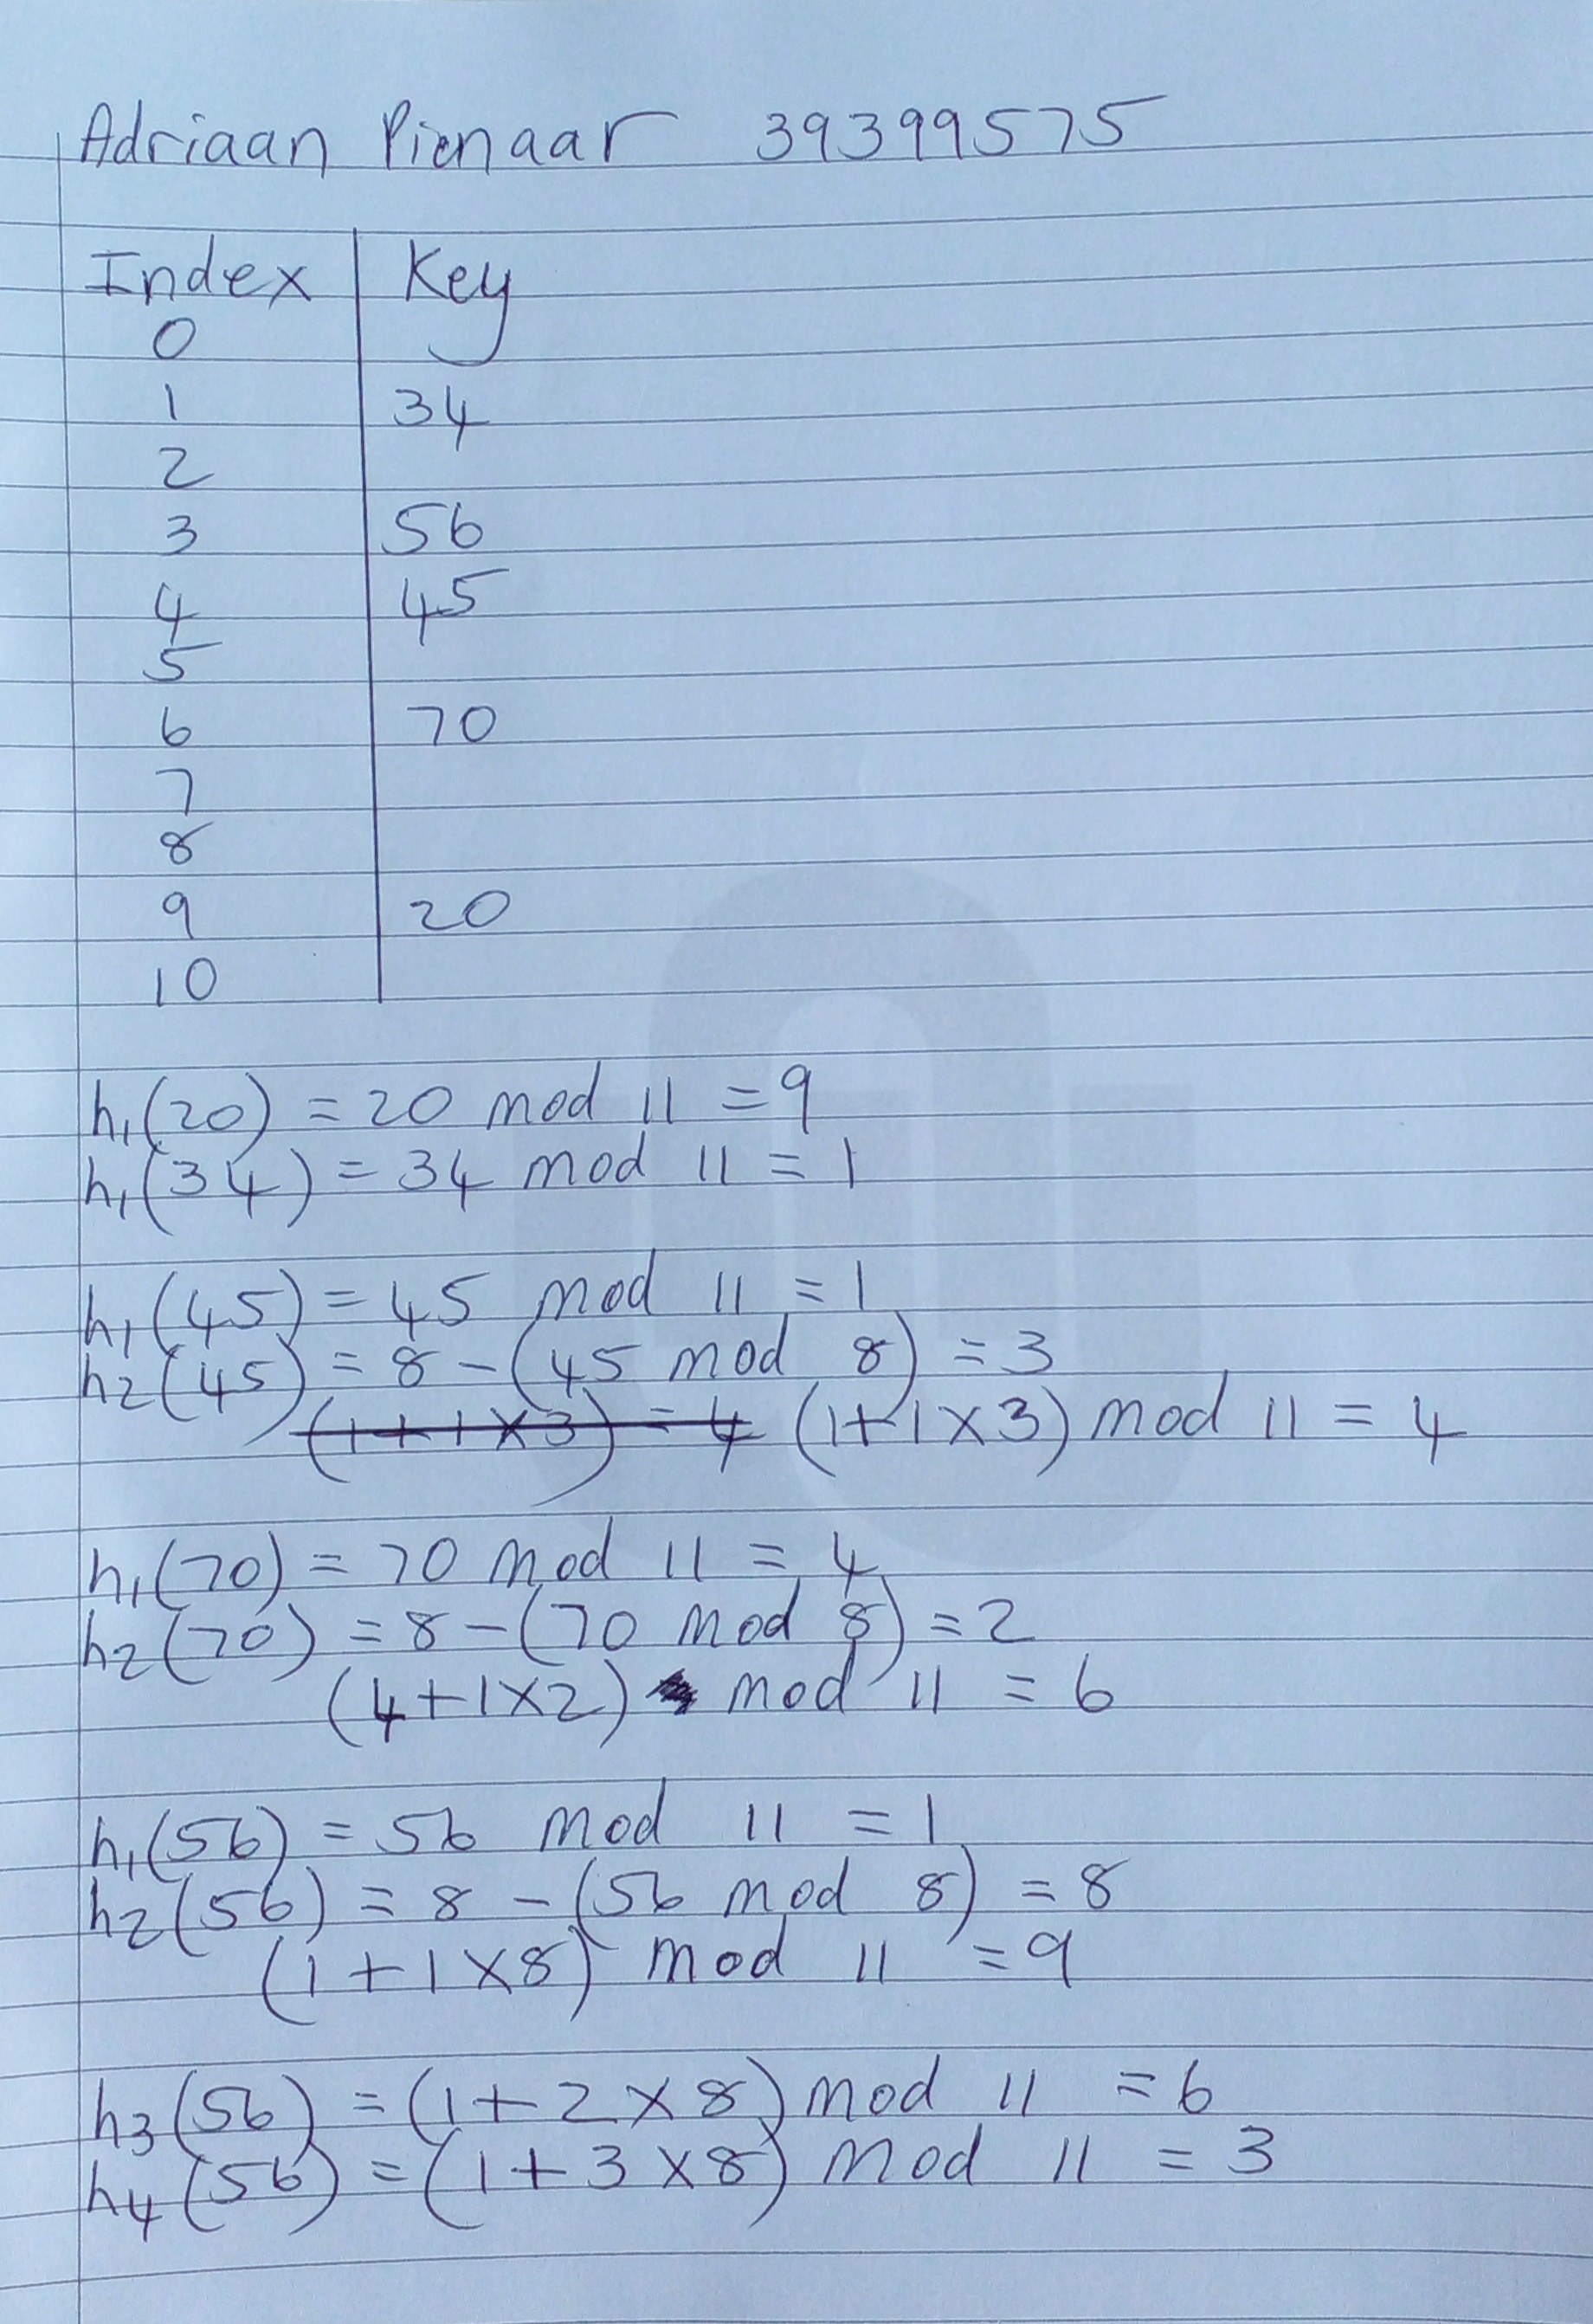 Adriaan Pienaar 39399575
Index Key
0
1 34
2
3 56
4 45
5
6 70
7
8
9 20
10
h₁(20) = 20 mod 11 = 9
h₁(34) = 34 mod 11 = 1
h₁(45) = 45 mod 11 = 1
h₂(45) = 8 - (45 mod 8) = 3
(1+1×3) = 4 (1+1×3) mod 11 = 4
h₁(70) = 70 mod 11 = 4
h₂(70) = 8 - (70 mod 8) = 2
(4+1×2) mod 11 = 6
h₁(56) = 56 mod 11 = 1
h₂(56) = 8 - (56 mod 8) = 8
(1+1×8) mod 11 = 9
h₃(56) = (1+2×8) mod 11 = 6
h₄(56) = (1+3×8) mod 11 = 3